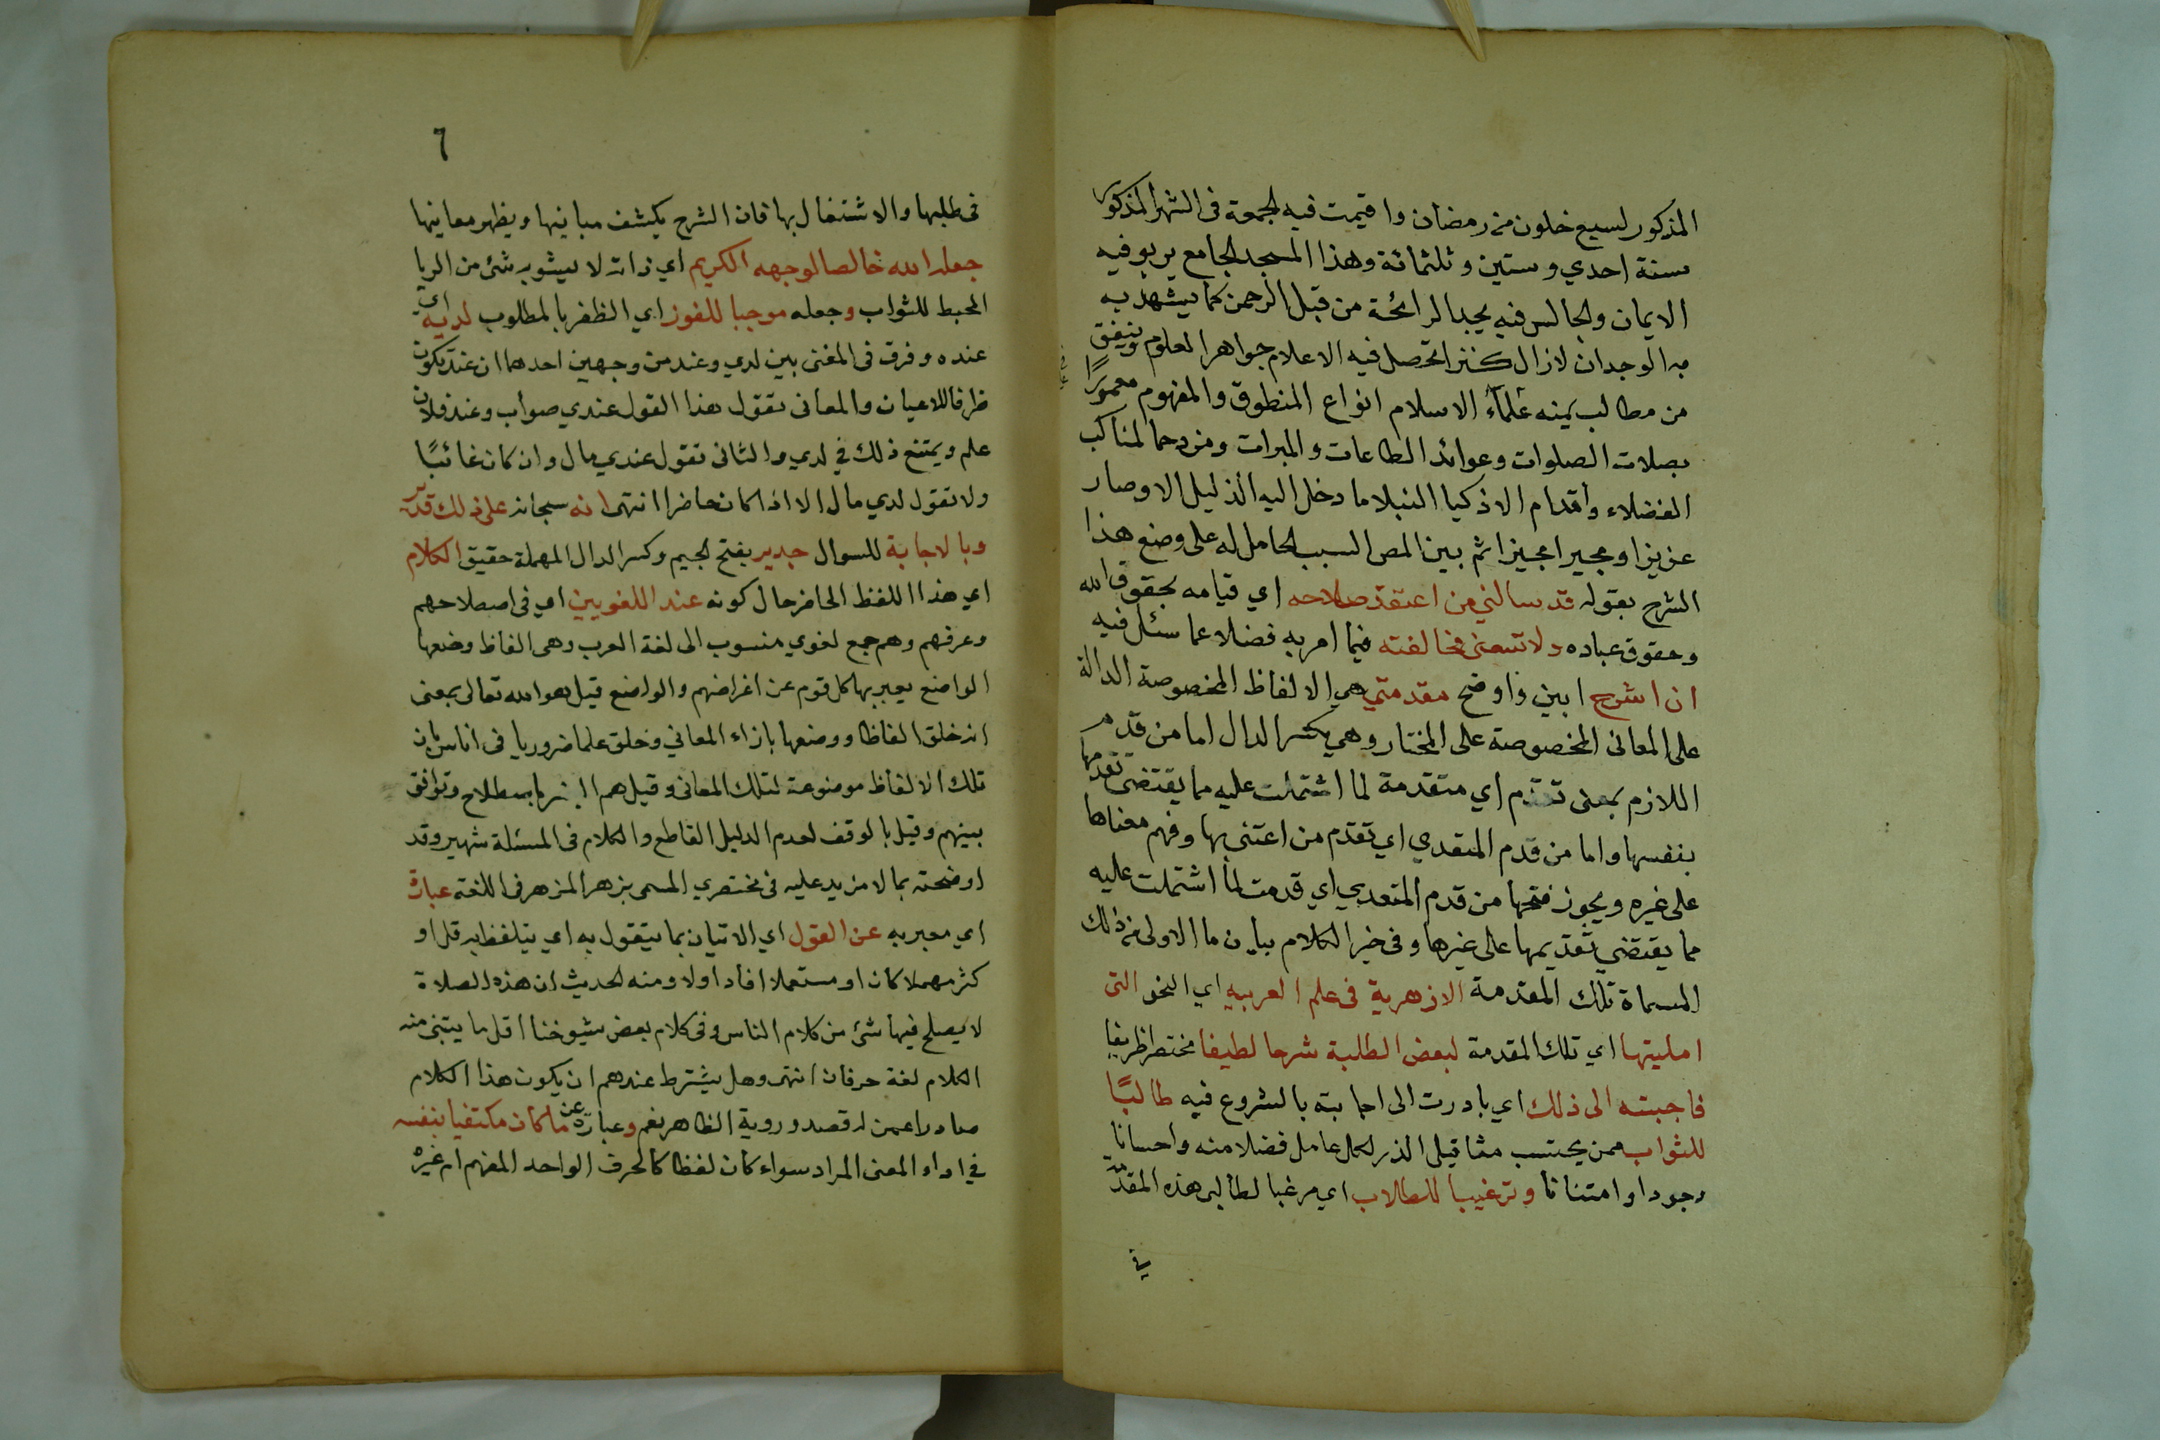 المذكور لسبع خلون من رمضان واقيمت فيه الجمعة فى الشهر المذكور
سنة احدي وستين وثلثمائة وهذا المسجد الجامع يربو فيه
الايمان والجالس فيه يجد الرائحة من قبل الرحمن كما يشهد به
به الوجدان لازال كنزا تحصل فيه الاعلام جواهر العلوم وينفق
من مطالب يمنه علمآء الاسلام انواع المنطوق والمفهوم معمورًا
بصلات الصلوات وعوائد الطاعات والمبرات ومزدحما لمناكب
الفضلاء وأقدام الاذكيا النبلا ما دخل اليه الذليل الا وصار
عزيزا ومجيرا مجيزا ثم بين المص السبب الحامل له على وضع هذا
الشرح بقوله قد سالني من اعتقد صلاحه اي قيامه بحقوق الله
وحقوق عباده ولا تسعنى مخالفته فيما امر به فضلا عما سئل فيه
ان اشرح ابين واوضح مقدمتي هي الالفاظ المخصوصة الدالة
على المعانى المخصوصة على المختار وهي بكسر الدال اما من قدم
اللازم بمعنى تقدم اي متقدمة لما اشتملت عليه مما يقتضى تقدمها
بنفسها واما من قدم المتعدي اي تقدم من اعتنى بها وفهم معناها
على غيره ويجوز فتحها من قدم المتعدي اي قدمت لما اشتملت عليه
مما يقتضي تقديمها على غيرها وفى خبر الكلام بيان ما الاولى من ذلك
المسماة تلك المقدمة الازهرية فى علم العربيه اي النحو التى
امليتها اي تلك المقدمة لبعض الطلبة شرحا لطيفا مختصرا ظريفا
فاجبته الى ذلك اي بادرت الى اجابته بالشروع فيه طالبًا
للثواب ممن يحتسب مثاقيل الذر لكل عامل فضلا منه واحسانا
وجودا وامتنانا وترغيبا للطلاب اي مرغبا لطالبى هذه المقدّ
في
٦
فى طلبها والاشتغال بها فان الشرح يكشف مبانيها ويظهر معانيها
جعله الله خالصا لوجهه الكريم اي ذاته لا يشوبه شئ من الريا
المحبط للثواب وجعله موجبا للفوز اي الظفر بالمطلوب لديه اي
عنده وفرق فى المغنى بين لدي وعند من وجهين احدهما ان عند تكون
ظرفا للاعيان والمعانى تقول هذا القول عندي صواب وعند فلان
علم ويمتنع ذلك في لدي والثانى تقول عندي مال وان كان غائبًا
ولا تقول لدي مال الا اذا كان حاضرا انتهى انه سبحانه على ذلك قدير
وبالاجابة للسوال جدير بفتح الجيم وكسر الدال المهملة حقيق الكلام
اي هذا اللفظ الحاضر حال كونه عند اللغويين اي فى اصطلاحهم
وعرفهم وهم جمع لغوي منسوب الى لغة العرب وهى الفاظ وضعها
الواضع يعبر بها كل قوم عن اغراضهم والواضع قيل هو الله تعالى بمعنى
انه خلق الفاظا ووضعها بازاء المعاني وخلق علما ضروريا فى اناس بان
تلك الالفاظ موضوعة لتلك المعانى وقيل هم البشر باصطلاح وتوافق
بينهم وقيل بالوقف لعدم الدليل القاطع والكلام فى المسئلة شهير وقد
اوضحته بما لا مزيد عليه فى مختصري المسمى بزهر المزهر فى اللغة عبارة
اي معبر به عن القول اي الاتيان بما يتقول به اي يتلفظ به قل او
كثر مهملا كان او مستعملا افاد اولا ومنه الحديث ان هذه الصلاة
لا يصلح فيها شئ من كلام الناس وفى كلام بعض شيوخنا اقل ما يبتنى منه
الكلام لغة حرفان انتهى وهل يشترط عندهم ان يكون هذا الكلام
صادرا عمن له قصد وروية الظاهر نعم وعبارة عن ما كان مكتفيا بنفسه
في اداء المعنى المراد سواء كان لفظا كالحرف الواحد المفهم ام غيره